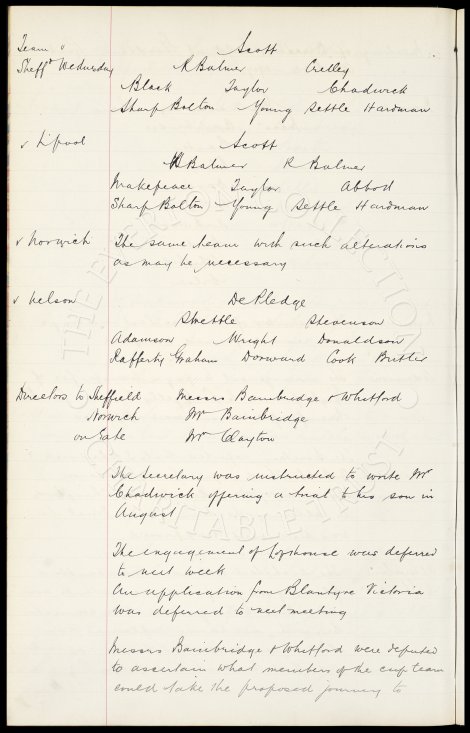 Team v Scott
Sheffd Wednesday R Balmer Crelley
Black Taylor Chadwick
Sharp Bolton Young Settle Hardman
v Lpool Scott
W Balmer R Balmer
Makepeace Taylor Abbott
Sharp Bolton Young Settle Hardman
v Norwich The same team with such alterations
as may be necessary
v Nelson DePledge
Strettle Stevenson
Adamson Wright Donaldson
Rafferty Graham Dorward Cook Butler
Directors to Sheffield Messrs Bainbridge & Whitford
Norwich Mr Bainbridge
on Gate Mr Clayton
The Secretary was instructed to write Mr
Chadwick offering a trial to his son in
August
The engagement of was deferred
to next week
An application from Blantyre Victoria
was deferred to next meeting
Messrs Bainbridge & Whitford were deputed
to ascertain what members of the cup team
could take the proposed journey to
THE EVERTON COLLECTION
CHARITABLE TRUST